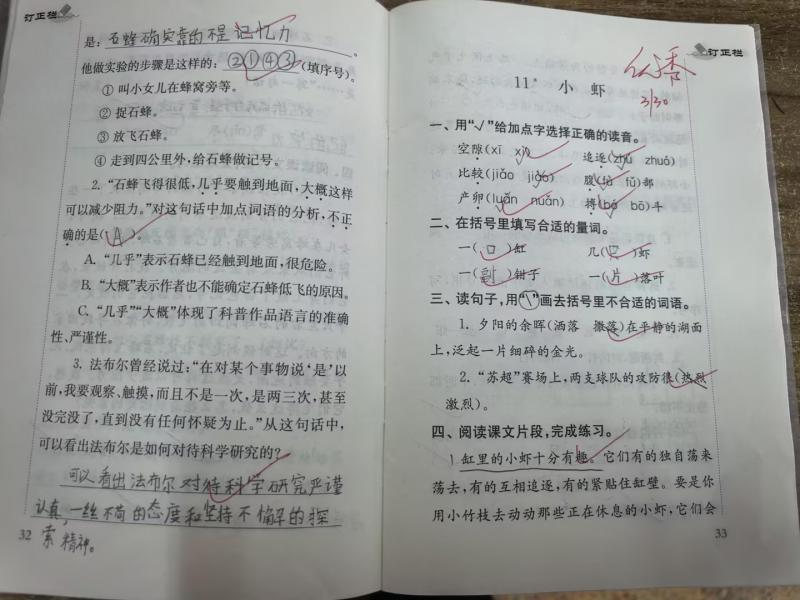 订正栏
是：石蜂确实靠的不是记忆力。
他做实验的步骤是这样的：②①④③(填序号)。
① 叫小女儿在蜂窝旁等。
② 捉石蜂。
③ 放飞石蜂。
④ 走到四公里外，给石蜂做记号。
2. “石蜂飞得很低，几乎要触到地面，大概这样
可以减少阻力。”对这句话中加点词语的分析，不正
确的是( A )。
A. “几乎”表示石蜂已经触到地面，很危险。
B. “大概”表示作者也不能确定石蜂低飞的原因。
C. “几乎”“大概”体现了科普作品语言的准确
性、严谨性。
3. 法布尔曾经说过：“在对某个事物说‘是’以
前，我要观察、触摸，而且不是一次，是两三次，甚至
没完没了，直到没有任何怀疑为止。”从这句话中，
可以看出法布尔是如何对待科学研究的？
可以看出法布尔对待科学研究严谨
认真，一丝不苟的态度和坚持不懈的探
索精神。
32
订正栏
3/30
11* 小 虾
一、用“√”给加点字选择正确的读音。
空隙(xī xì) 追逐(zhú zhuó)
比较(jiǎo jiào) 腹(fù fǔ)部
产卵(luǎn nuǎn) 搏(bó bō)斗
二、在括号里填写合适的量词。
一(口)缸 几(只)虾
一(副)钳子 一(片)落叶
三、读句子，用“\”画去括号里不合适的词语。
1. 夕阳的余晖(洒落 撒落)在平静的湖面
上，泛起一片细碎的金光。
2. “苏超”赛场上，两支球队的攻防很(热烈
激烈)。
四、阅读课文片段，完成练习。
1 缸里的小虾十分有趣。它们有的独自荡来
荡去，有的互相追逐，有的紧贴住缸壁。要是你
用小竹枝去动动那些正在休息的小虾，它们会
33